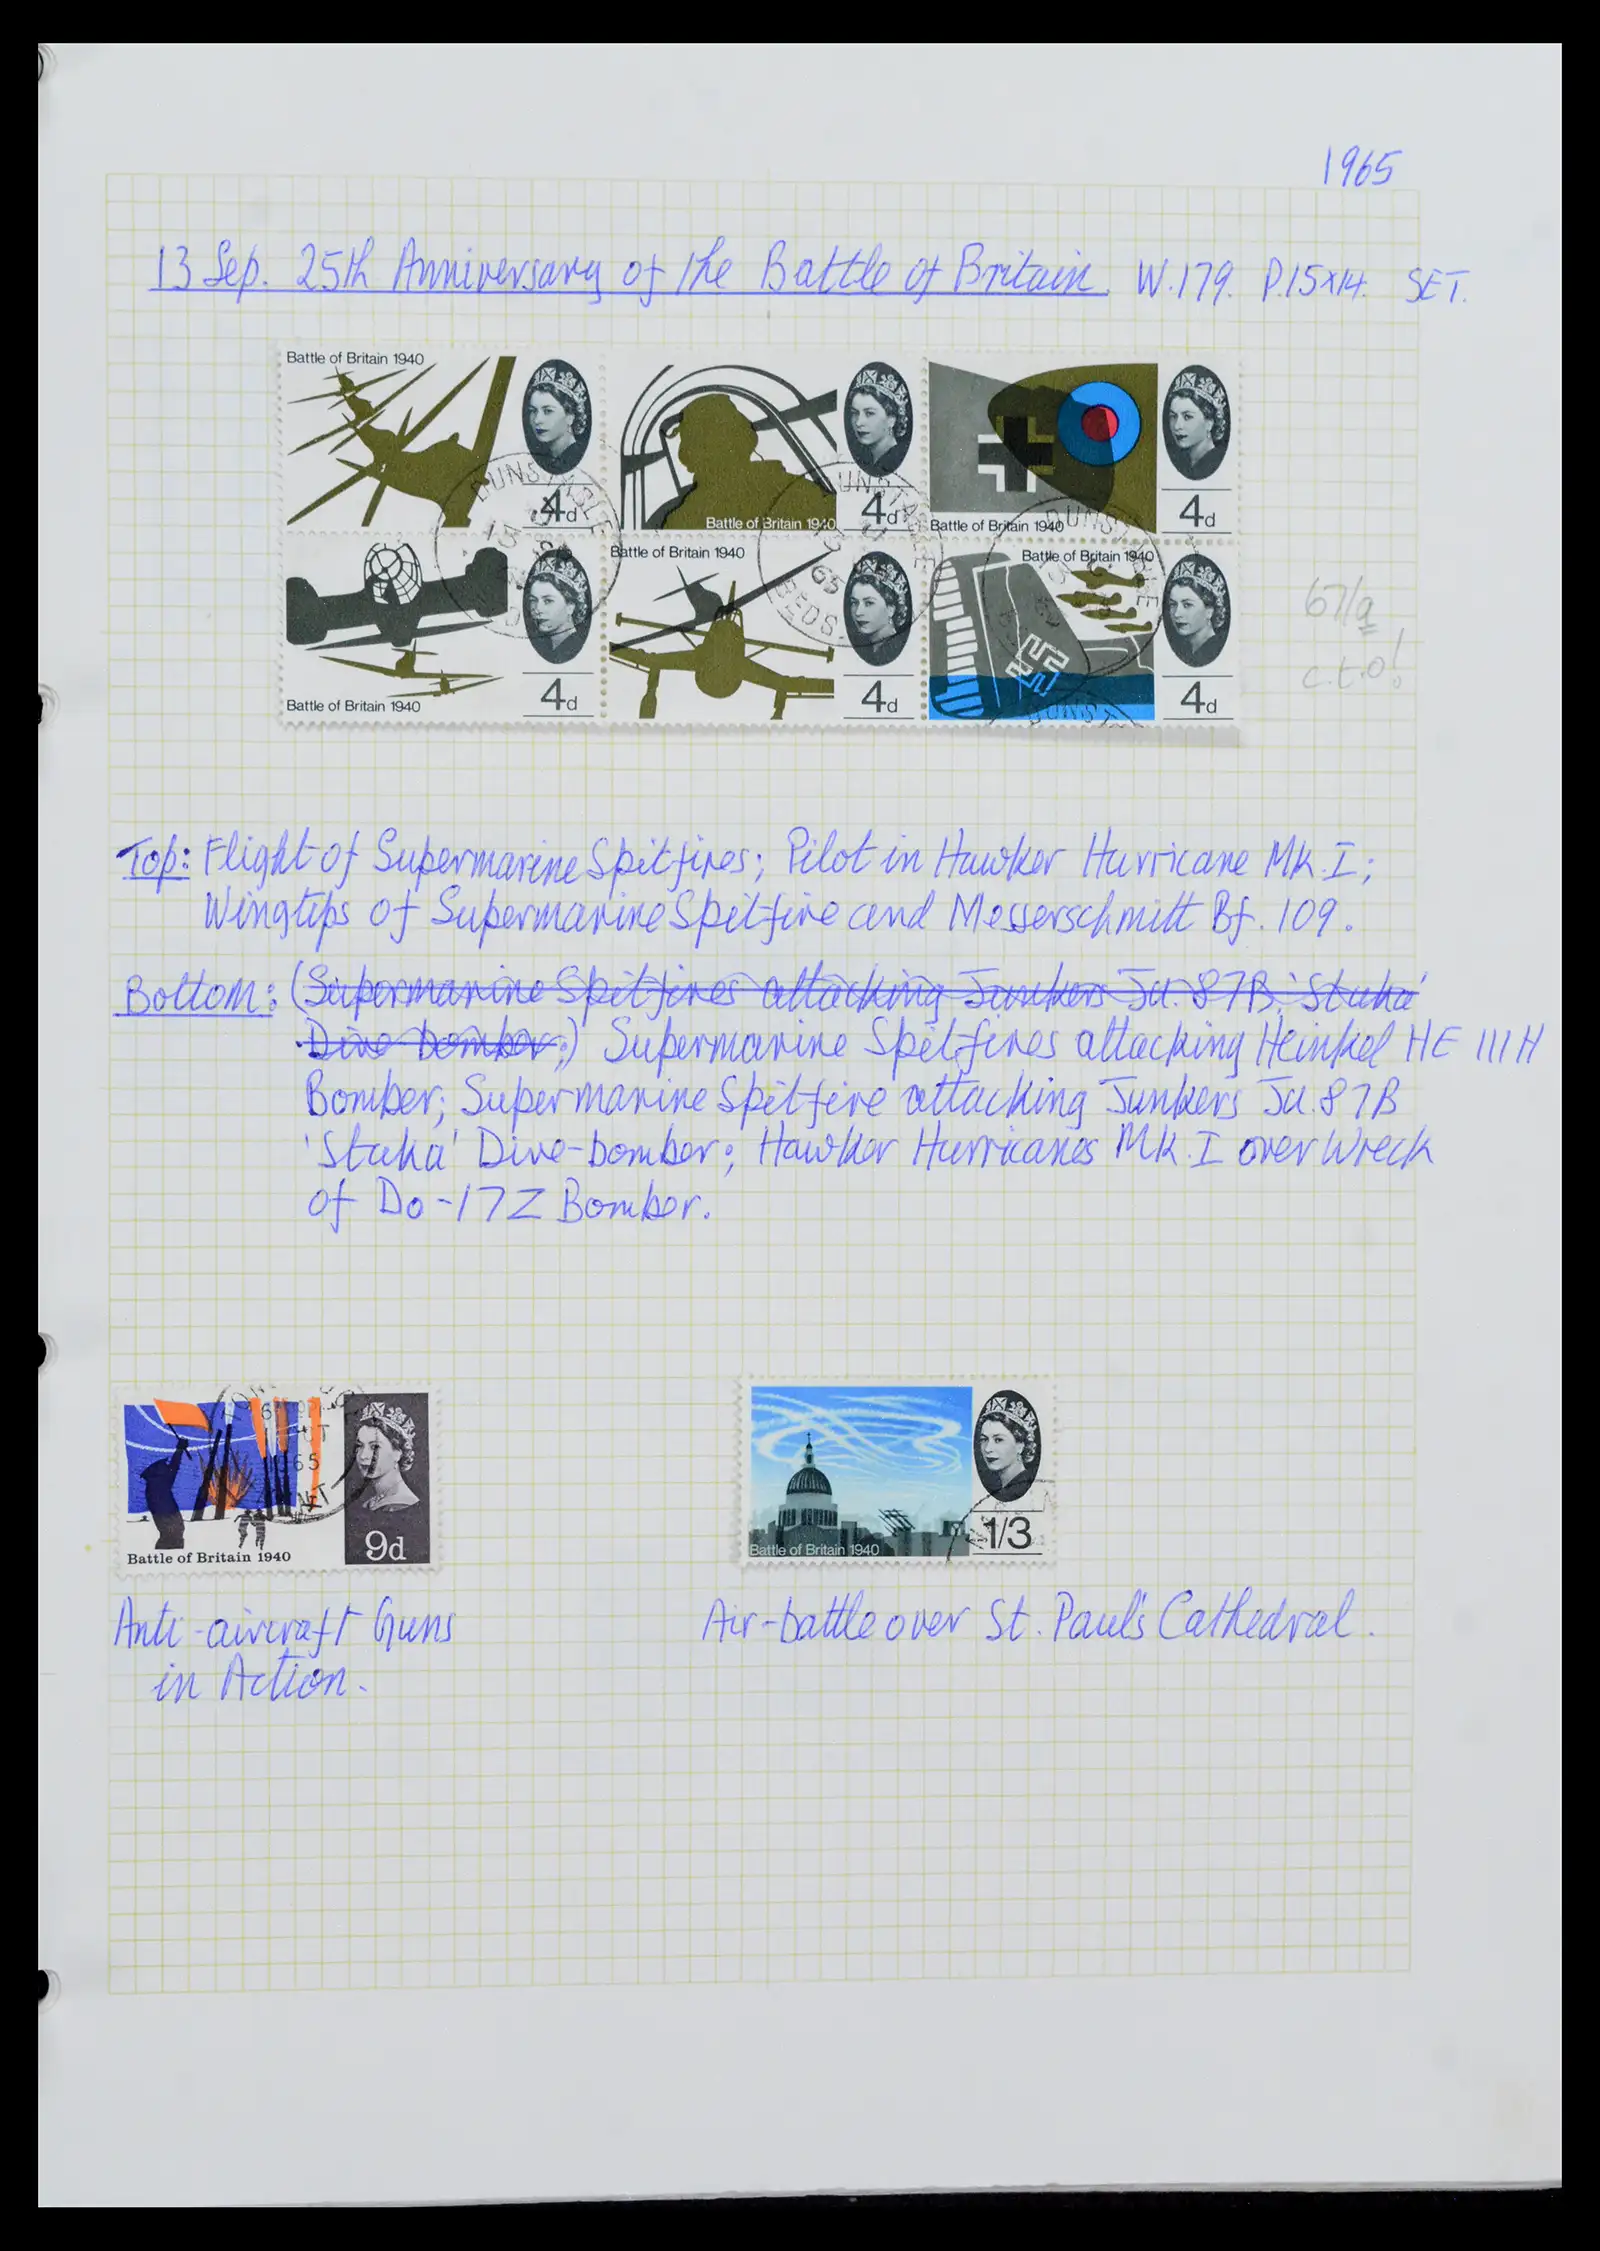 1965
13 Sep. 25th Anniversary of the Battle of Britain. W.179. P.15x14. SET.
Battle of Britain 1940
4d
Battle of Britain 1940
4d
Battle of Britain 1940
4d
DUNSTABLE
DUNSTABLE
BEDS
65
DUNST
Battle of Britain 1940
4d
Battle of Britain 1940
4d
Battle of Britain 1940
4d
DUNST
67/a
c.t.o!
Top: Flight of Supermarine Spitfires; Pilot in Hawker Hurricane Mk.I;
Wingtips of Supermarine Spitfire and Messerschmitt Bf. 109.
Bottom: (Supermarine Spitfires attacking Junkers Ju. 87B. 'Stuka'
Dive bomber;) Supermarine Spitfires attacking Heinkel HE 111H
Bomber; Supermarine Spitfire attacking Junkers Ju.87B
'Stuka' Dive-bomber; Hawker Hurricanes Mk.I over Wreck
of Do-17Z Bomber.
65
Battle of Britain 1940
9d
Battle of Britain 1940
1/3
Anti-aircraft Guns
in Action.
Air-battle over St. Paul's Cathedral.